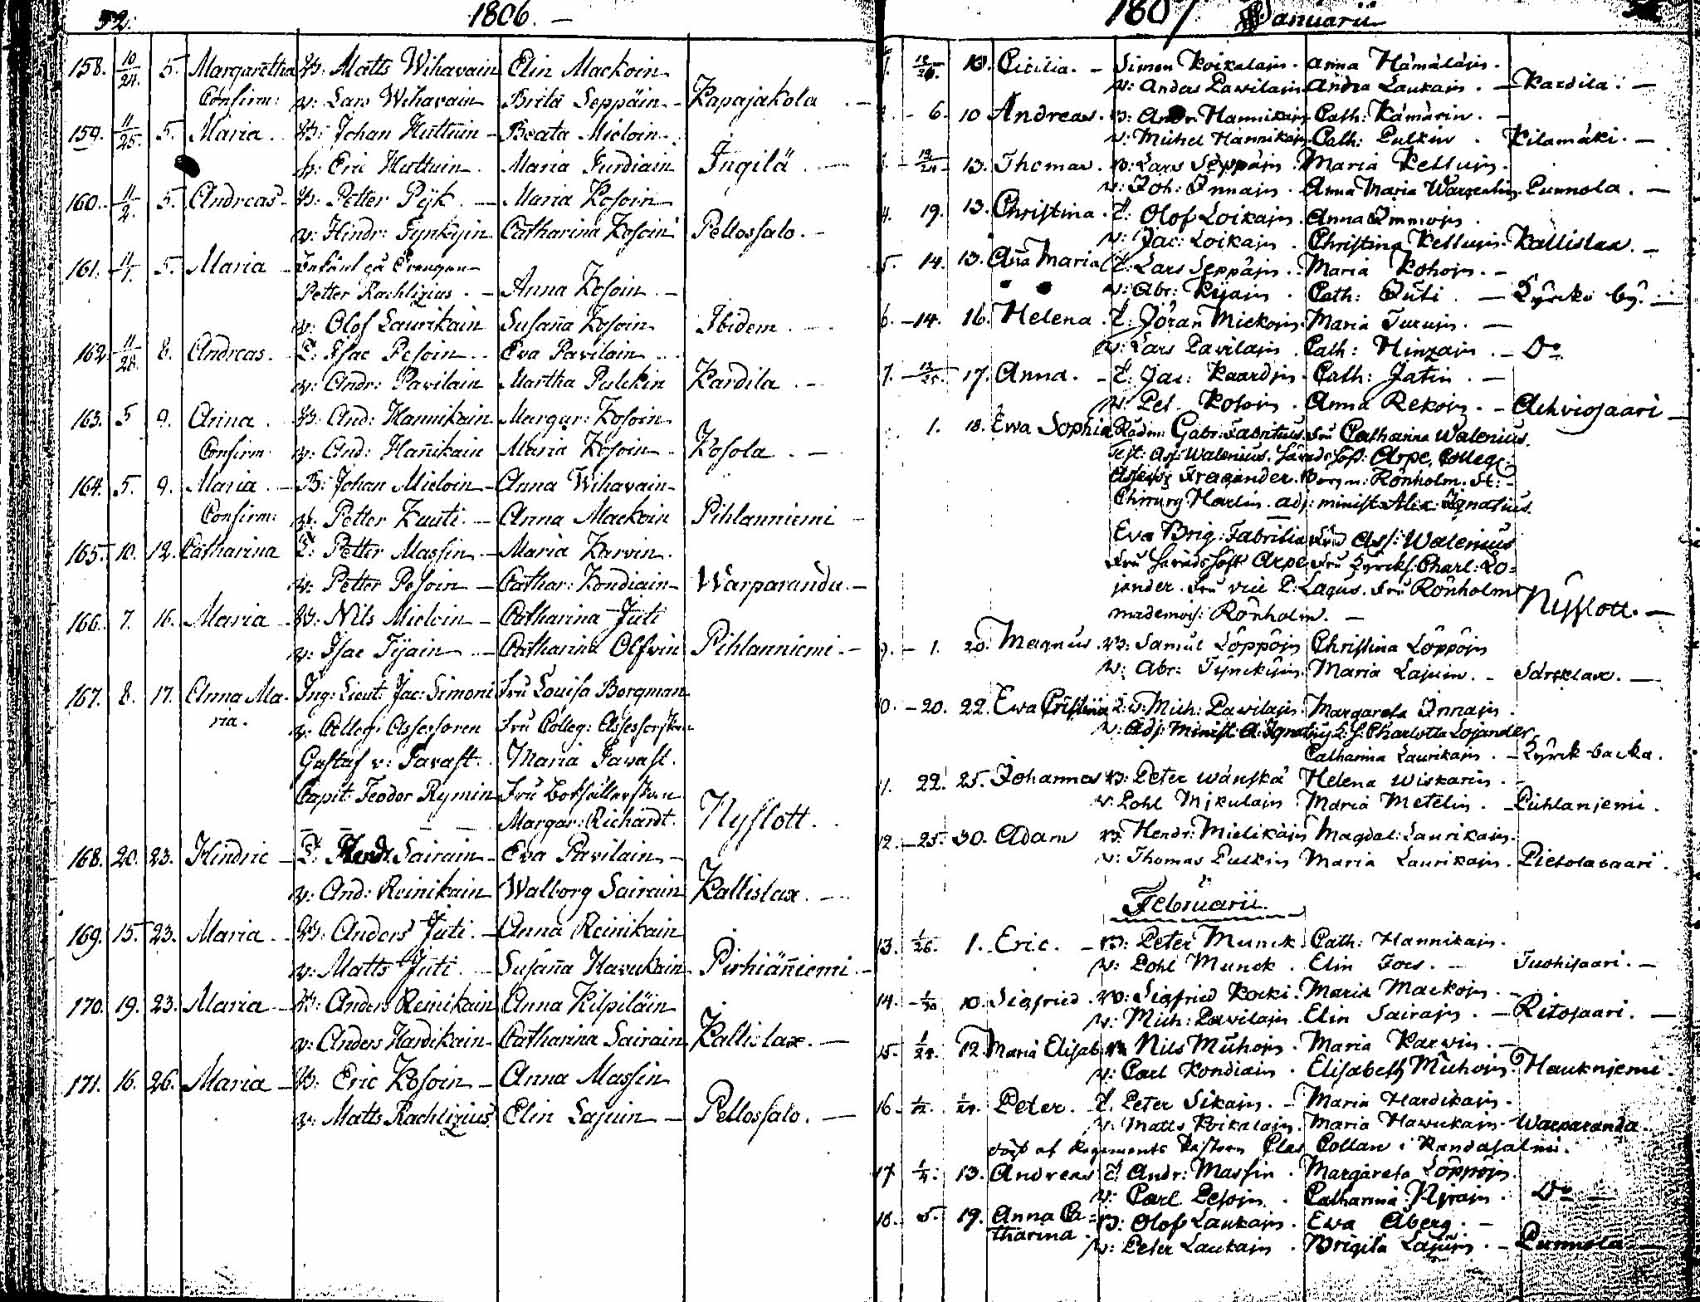 32.
1806. —
158. 10/24. 5. Margaretha B: Matts Wihavain Elin Mackoin
Confirm: v: Lars Wihavain Brita Seppäin - Kapajakola -
159. 11/25. 5. Maria B: Johan Huttuin - Beata Mieloin.
v: Eric Huttuin. Maria Turdiain Ingilä -
160. 11/2. 5. Andreas B: Petter Pijk. - Maria Kosoin
v: Hindr: Tynkyin Catharina Kosoin Pellossalo. -
161. 5. Maria
Petter Rachlizius. - Anna Kosoin. -
v: Olof Laurikain Susaña Kosoin Ibidem. -
162. 11/28. 8. Andreas. T: Isac Pesoin. Eva Pavilain
v: Andr: Pavilain Martha Pulckin Kardila. -
163. 5 9. Anna. B: And: Hannikain Margar: Kosoin
Confirm v: And: Hañikain Maria Kosoin Kosola. -
164. 5. 9. Maria. B: Johan Mieloin - Anna Wihavain
Confirm: v: Petter Kuuti. - Anna Mackoin Pihlanniemi -
165. 10. 12. Catharina T: Petter Massin - Maria Karvin
v: Petter Pesoin - Cathar: Kondiain - Warparanda. -
166. 7. 16. Maria B: Nils Mieloin - Catharina Juti
v: Isac Tijain - Catharina Olfvin Pihlanniemi. -
167. 8. 17. Anna Ma- Ing: Lieut: Jac: Simoni Fru Lovisa Borgman
ria. v: Colleg: Assessoren Fru Colleg: Assessorskan
Gustaf v: Tavast. Maria Tavast.
Capit: Teodor Rymin Fru
Margar: Richardt. Nyslott.
168. 20. 23. Hindric - T: Hendr. Sairain - Eva Pavilain -
v: And: Reinikain Walborg Sairain Kallislax. -
169. 15. 23. Maria B: Anders Juti. - Anna Reinikain
v: Matts Juti. - Susaña Havukain Pirhiäñiemi. -
170. 19. 23. Maria B: Anders Reinikain Anna Kilpiläin
v: Anders Hardikain Catharina Sairain Kallislax. -
171. 16. 26. Maria B: Eric Kosoin - Anna Massin
v: Matts Rachlizius Elin Lajuin - Pellossalo. -
1807 Januarii
10. Cicilia. - Simon Koikalain. Anna Hämäläin.
v: Andas Pavilain Andra Laukain. - Kardila. -
6. 10 Andreas. B: Andr Hannikain Cath: Kämärin. -
v: Michel Hannikain Cath: Pulkin. Kilamäki. -
13. Thomas B: Lars Seppäin Maria Kelluin.
v: Joh: Innain. Anna Maria Punnola. -
4. 19. 13. Christina. T: Olof Loikain. Anna Immoin.
v: Jac: Loikain. Christina Kelluin Kallislax. -
5. 14. 13. Aña Maria T: Lars Seppäin. Maria Kohoin. -
v: Abr: Kijain. Cath: Juti. - Kyrko by. -
6. 14. 16. Helena T: Jöran Mickoin. Maria Turuin. -
v: Lars Pavilain. Cath: Hinzain. - Do
7. 12/25. 17. Anna. - T: Jac: Kaardin. Cath: Jatin. -
v: Pet. Kosoin. Anna Rekoin. - Achviosaari -
1. 18. Ewa Sophia Rådm: Gabr: Fabritius. Fru Catharina Walenius.
Test: Ass: Walenius. Häradshöf: Arpe, Colleg:
Assess: Fragander. Borgm: Rönholm. St:
Chirurg Harlin. adj: minist: Alex: Ignatius.
Eva Brig: Fabritia Fru Ass: Walenius
Fru Häradshöft Arpe Fru Kyrckh: Charl: Lo-
jander. Fru vice P: Lagus. Fru Rönholm
mademois: Rönholm. - Nyslott. -
9. - 1. 20. Magnus B: Samul Löppöin Christina Löppöin
v: Abr: Tynckyin Maria Lajuin. - Särklax. -
10. - 20. 22. Ewa Cristina T: v: Mich: Pavilain Margareta Innain
v: Adj: Minist: A: Ignatius Charlotta Lojander
Catharina Laurikain. - Kyrck backa.
22. 25. Johannes B: Peter Wänskä Helena Wiskarin. -
v. Pohl Mikulain Maria Metelin. - Pihlanjemi.
12. - 25. 30. Adam B: Hendr: Mielikäin Magdal: Laurikain.
v: Thomas Pulkin Maria Laurikain. Pietolasaari.
Februarii.
13. 1/26. 1. Eric. - B: Peter Munck Cath: Hannikain.
v: Pohl Munck. Elin Toes. - Tuohisaari. -
14. 1/30 10. Sigfried. B: Sigfried Kocki. Maria Mackoin. -
v: Mich: Pavilain Elin Sairain. - Ritosaari. -
15. 1/24. 12. Maria Elisab B: Nils Muhoin. Maria Karvin. -
v: Carl Kondiain. Elisabeth Muhoin Hauknjemi.
16. Peter. T. Peter Sikain. - Maria Hardikain.
v. Matts Koikalain. Maria Hawukain. Warparanda.
döpt af Regements Pastorn Clas Collan i Randasalmi.
17. 1/4. 13. Andreas T. Andr: Massin. Margareta Löppöin.
v: Carl Pesoin. Catharina Nyrain. Do -
18. 5. 19. Anna Ca= B: Olof Laukain. Ewa Åberg. -
tharina. v: Peter Laukain. Brigita Lajuin. - Punnola. -